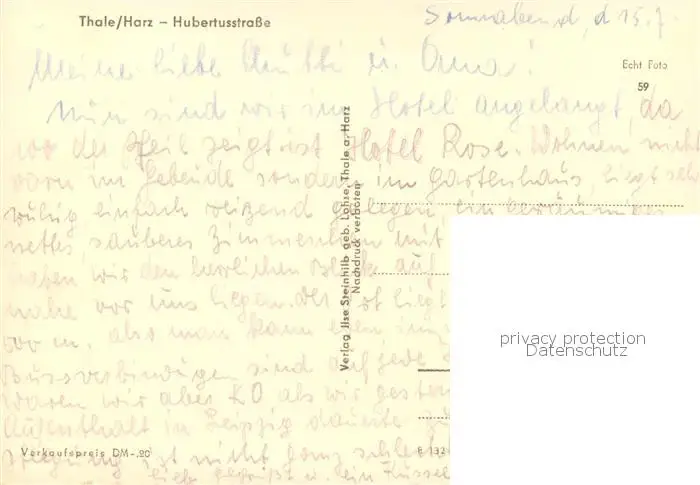 Thale/Harz – Hubertusstraße
Sonnabend, d 15.7.
Echt Foto
59
Meine liebe Mutti u. Oma!
Nun sind wir im Hotel angelangt, da
wo der Pfeil zeigt ist Hotel Rose. Wohnen nicht
vorn im Gebeude sondern im Gartenhaus, liegt sehr
ruhig einfach reizend gelegen, ein geräumiges
nettes sauberes Zimmerchen mit
haben wir den herrlichen Blick auf
nahe vor uns liegen. Der Ort liegt
m. also man kann eben
Bussverbindungen sind auf jede
Waren wir aber KO als wir gestern
Aufenthalt in Leipzig dauerte
ist nicht ganz schlecht
gegrüßt u. ein Küssel
Verlag Ilse Steinhilb geb. Lohse, Thale a. Harz
Nachdruck verboten
Verkaufspreis DM -.20
privacy protection
Datenschutz